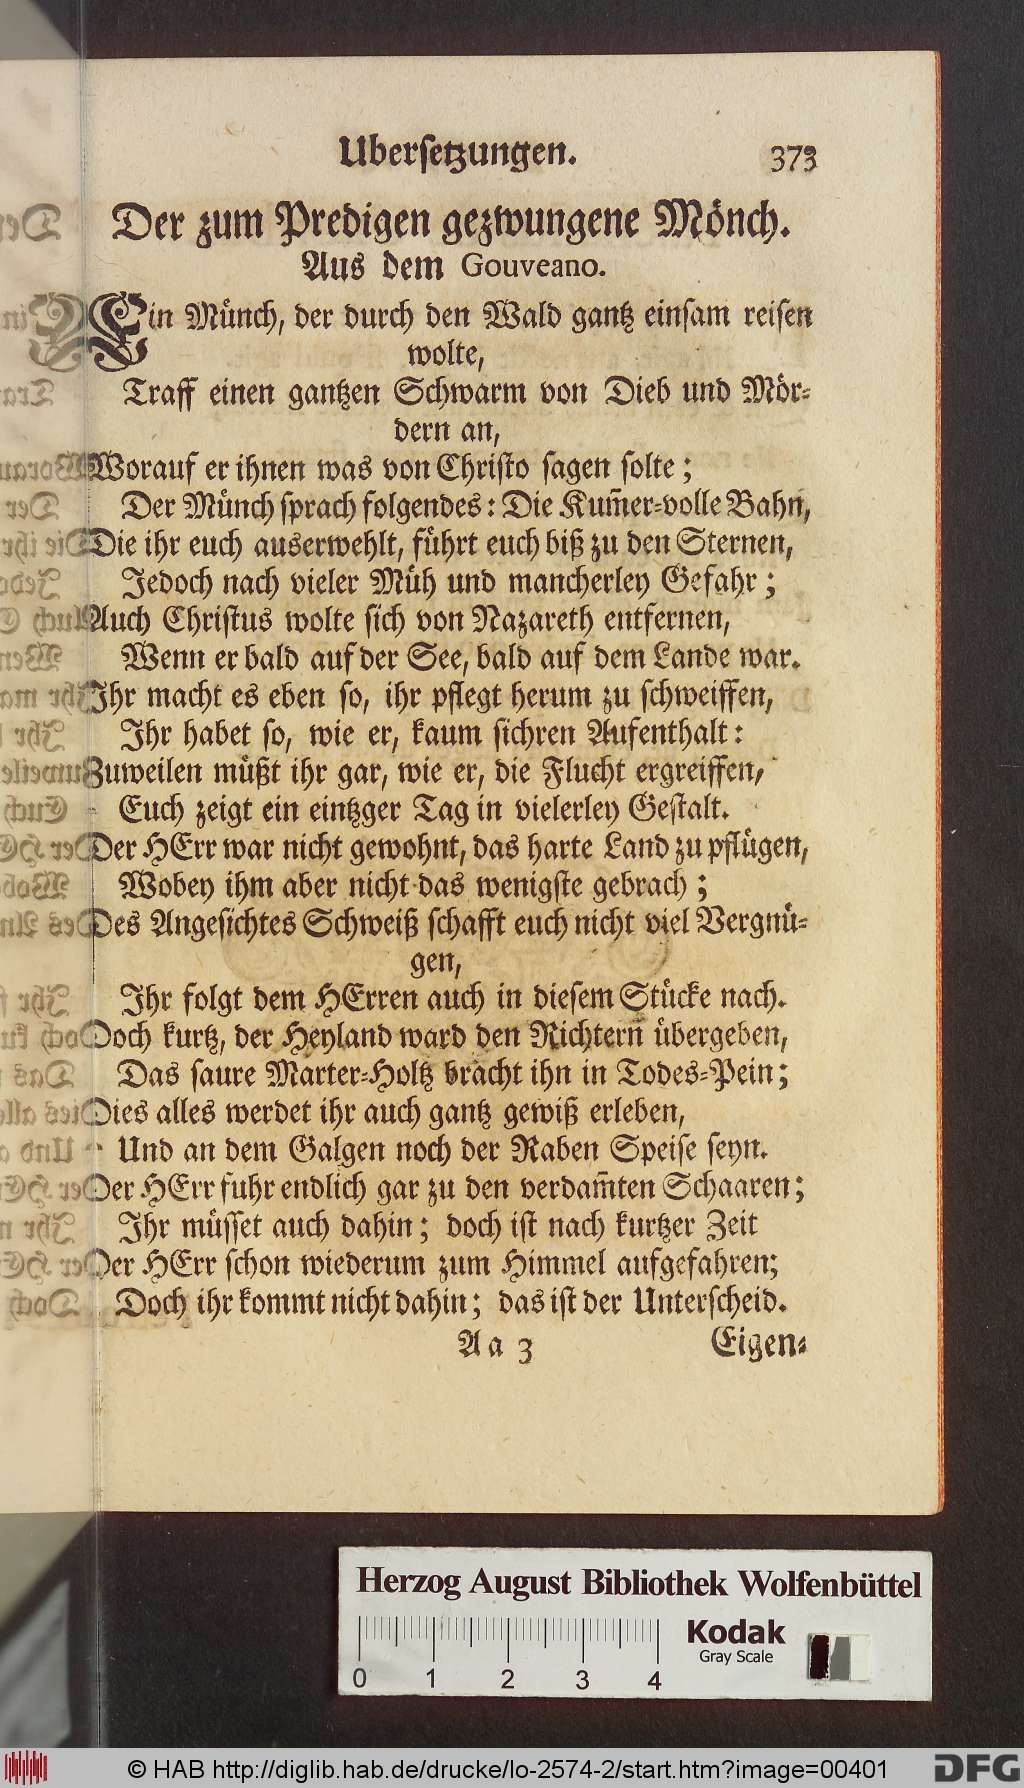 Ubersetzungen. 373
Der zum Predigen gezwungene Mönch.
Aus dem Gouveano.
Ein Münch, der durch den Wald gantz einsam reisen
wolte,
Traff einen gantzen Schwarm von Dieb und Mör-
dern an,
Worauf er ihnen was von Christo sagen solte;
Der Münch sprach folgendes: Die Kum̃er-volle Bahn,
Die ihr euch auserwehlt, führt euch biß zu den Sternen,
Jedoch nach vieler Müh und mancherley Gefahr;
Auch Christus wolte sich von Nazareth entfernen,
Wenn er bald auf der See, bald auf dem Lande war.
Ihr macht es eben so, ihr pflegt herum zu schweiffen,
Ihr habet so, wie er, kaum sichren Aufenthalt:
Zuweilen müßt ihr gar, wie er, die Flucht ergreiffen,
Euch zeigt ein eintzger Tag in vielerley Gestalt.
Der HErr war nicht gewohnt, das harte Land zu pflügen,
Wobey ihm aber nicht das wenigste gebrach;
Des Angesichtes Schweiß schafft euch nicht viel Vergnü-
gen,
Ihr folgt dem HErren auch in diesem Stücke nach.
Doch kurtz, der Heyland ward den Richtern übergeben,
Das saure Marter-Holtz bracht ihn in Todes-Pein;
Dies alles werdet ihr auch gantz gewiß erleben,
Und an dem Galgen noch der Raben Speise seyn.
Der HErr fuhr endlich gar zu den verdam̃ten Schaaren;
Ihr müsset auch dahin; doch ist nach kurtzer Zeit
Der HErr schon wiederum zum Himmel aufgefahren;
Doch ihr kommt nicht dahin; das ist der Unterscheid.
Aa 3 Eigen-
Herzog August Bibliothek Wolfenbüttel
Kodak
Gray Scale
0 1 2 3 4
© HAB http://diglib.hab.de/drucke/lo-2574-2/start.htm?image=00401
DFG